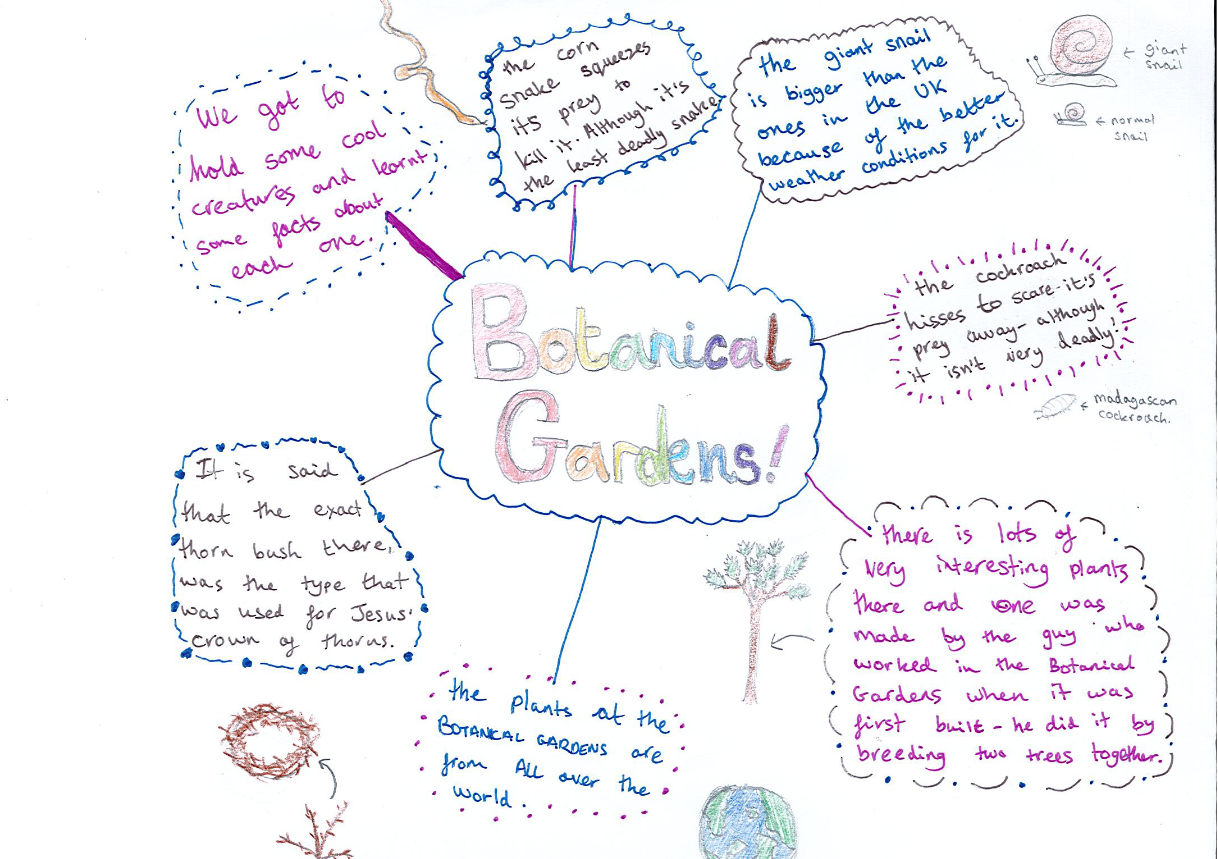 Botanical
Gardens!
We got to
hold some cool
creatures and learnt
some facts about
each one.
the corn
snake squeezes
its prey to
kill it. Although it's
the least deadly snake
the giant snail
is bigger than the
ones in the UK
because of the better
weather conditions for it.
giant
snail
normal
snail
the cockroach
hisses to scare it's
prey away - although
it isn't very deadly!
madagascan
cockroach.
there is lots of
very interesting plants
there and one was
made by the guy who
worked in the Botanical
Gardens when it was
first built - he did it by
breeding two trees together.
the plants at the
BOTANICAL GARDENS are
from ALL over the
world.
It is said
that the exact
thorn bush there,
was the type that
was used for Jesus'
crown of thorns.